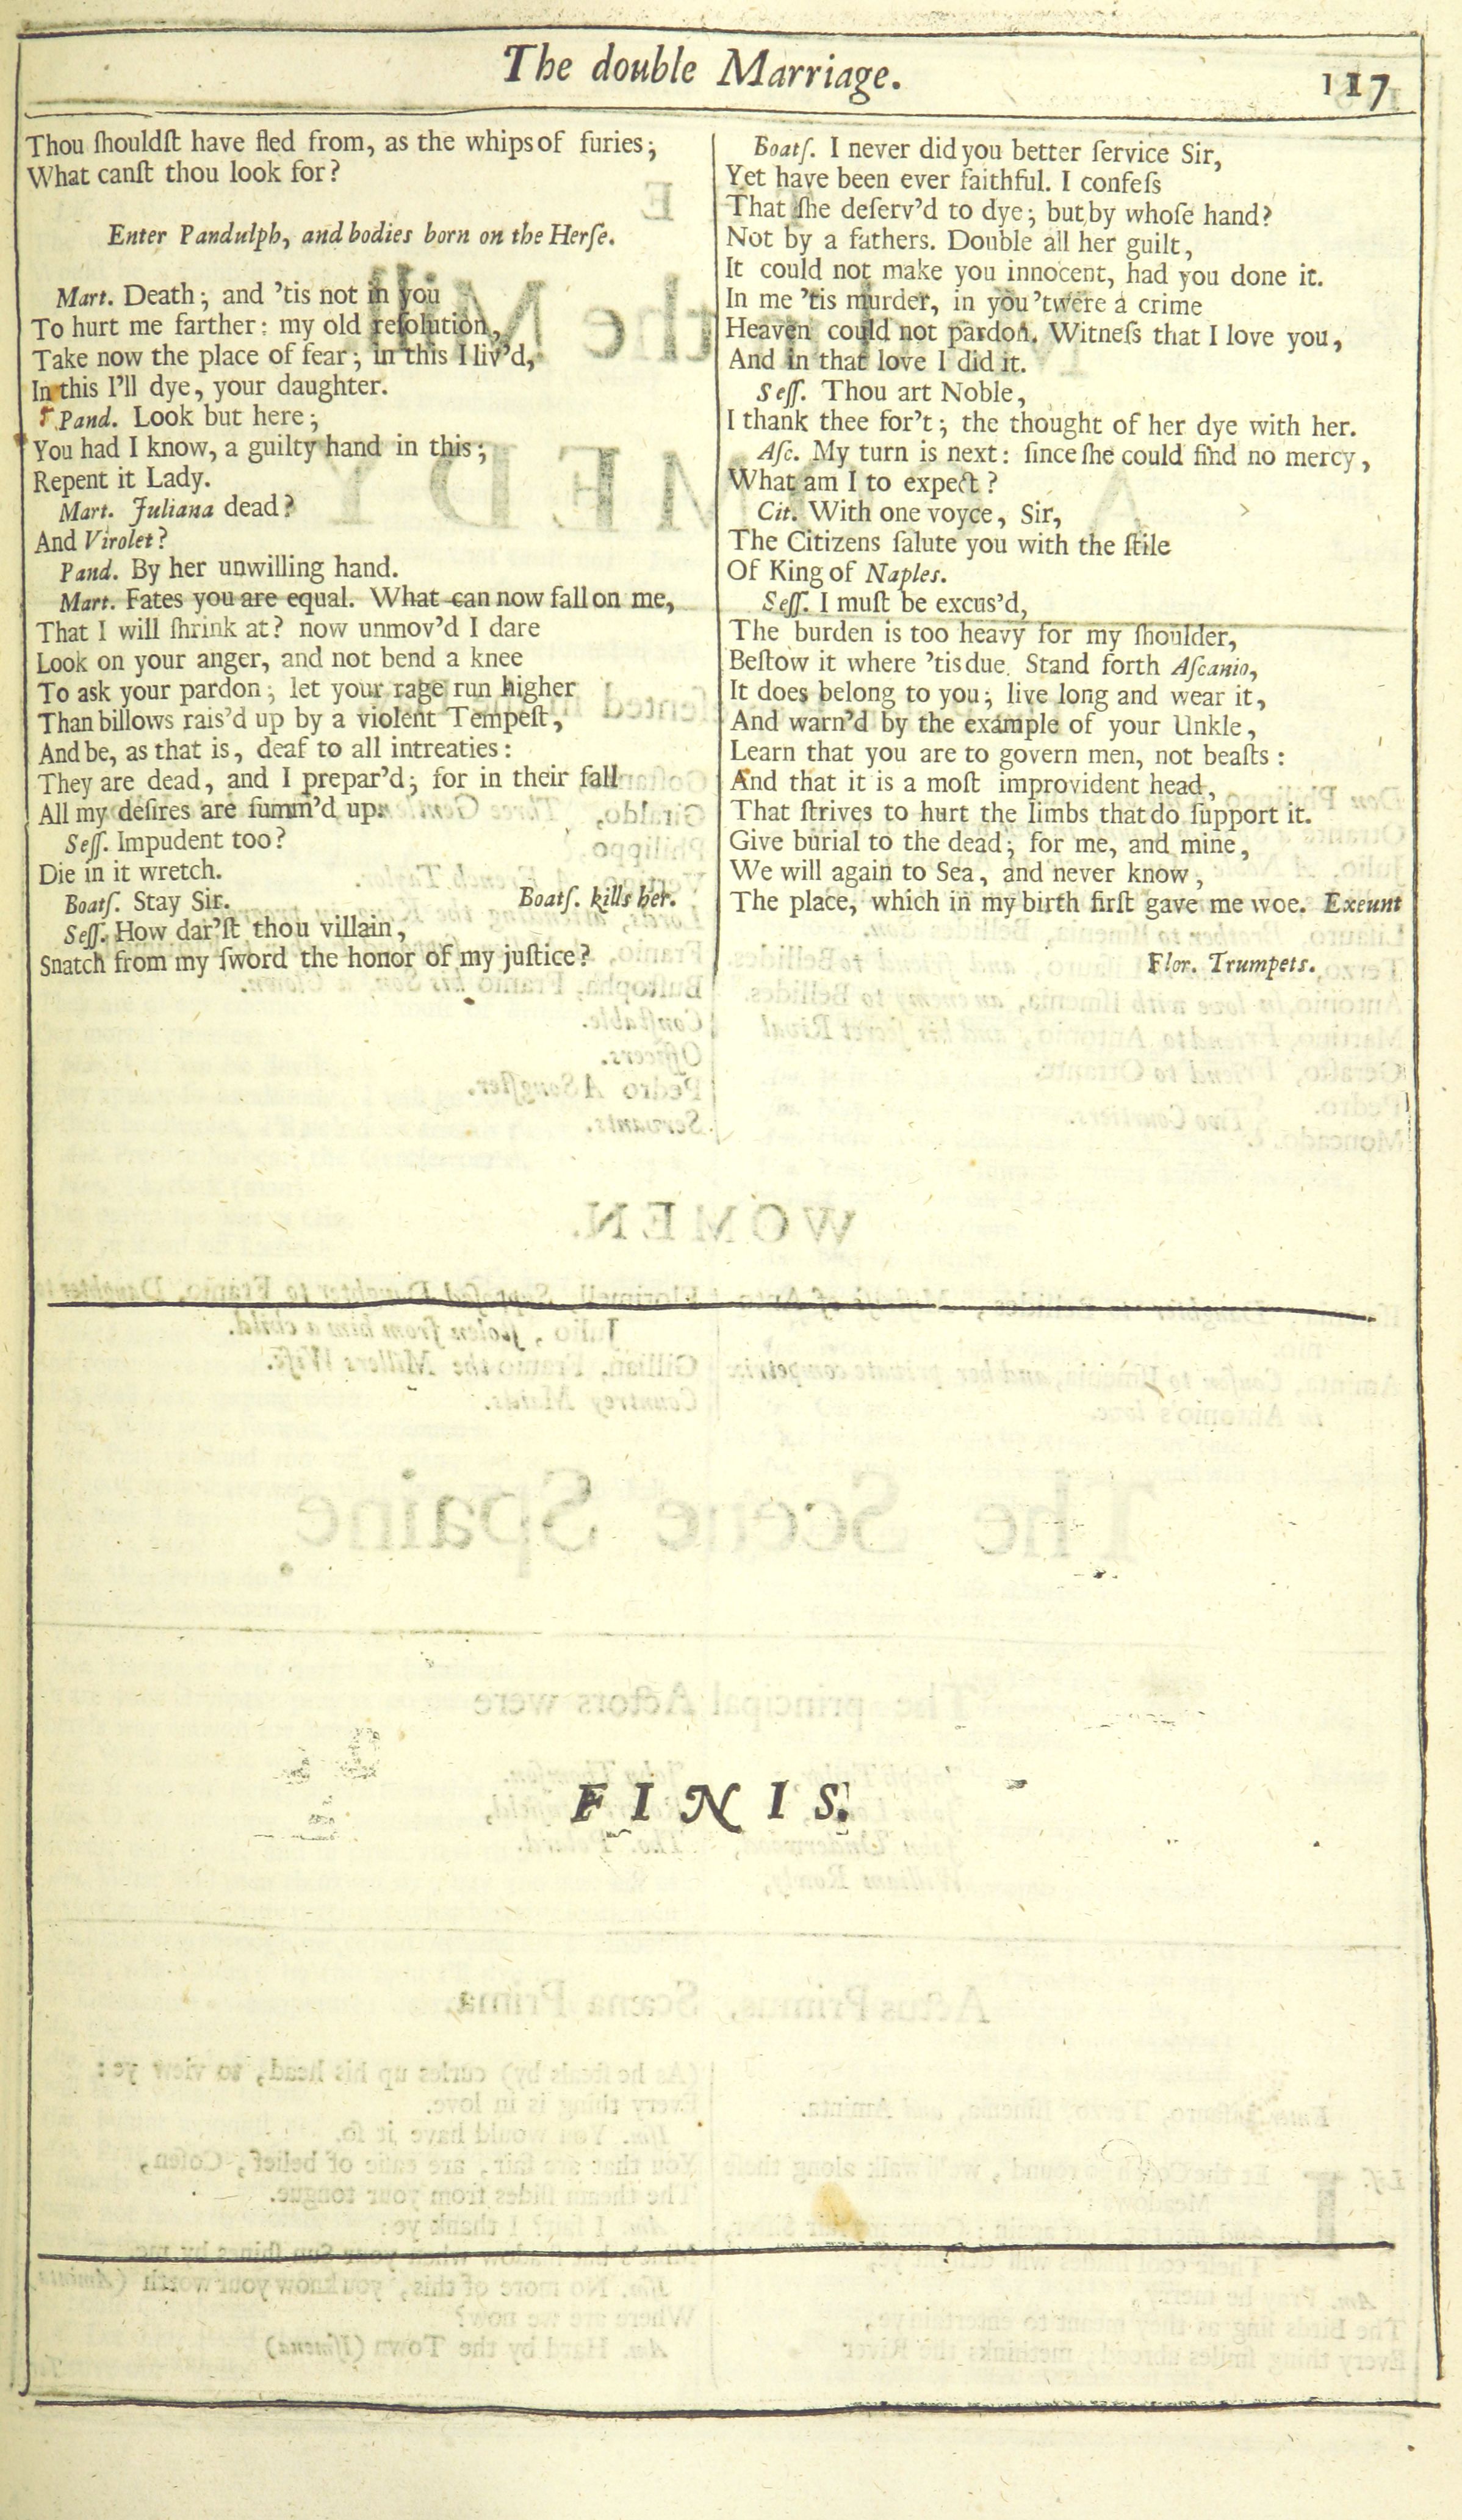 The double Marriage.
117
Thou ſhouldſt have fled from, as the whips of furies;
What canſt thou look for?
Enter Pandulph, and bodies born on the Herſe.
Mart. Death; and 'tis not in you
To hurt me farther: my old reſolution,
Take now the place of fear; in this I liv'd,
In this I'll dye, your daughter.
Pand. Look but here;
You had I know, a guilty hand in this;
Repent it Lady.
Mart. Juliana dead?
And Virolet?
Pand. By her unwilling hand.
Mart. Fates you are equal. What can now fall on me,
That I will ſhrink at? now unmov'd I dare
Look on your anger, and not bend a knee
To ask your pardon; let your rage run higher
Than billows rais'd up by a violent Tempeſt,
And be, as that is, deaf to all intreaties:
They are dead, and I prepar'd; for in their fall
All my deſires are ſumm'd up.
Seſſ. Impudent too?
Die in it wretch.
Boatſ. Stay Sir. Boatſ. kills her.
Seſſ. How dar'ſt thou villain,
Snatch from my ſword the honor of my juſtice?
Boatſ. I never did you better ſervice Sir,
Yet have been ever faithful. I confeſs
That ſhe deſerv'd to dye; but by whoſe hand?
Not by a fathers. Double all her guilt,
It could not make you innocent, had you done it.
In me 'tis murder, in you 'twere a crime
Heaven could not pardon. Witneſs that I love you,
And in that love I did it.
Seſſ. Thou art Noble,
I thank thee for't; the thought of her dye with her.
Aſc. My turn is next: ſince ſhe could find no mercy,
What am I to expect?
Cit. With one voyce, Sir,
The Citizens ſalute you with the ſtile
Of King of Naples.
Seſſ. I muſt be excus'd,
The burden is too heavy for my ſhoulder,
Beſtow it where 'tis due. Stand forth Aſcanio,
It does belong to you; live long and wear it,
And warn'd by the example of your Unkle,
Learn that you are to govern men, not beaſts:
And that it is a moſt improvident head,
That ſtrives to hurt the limbs that do ſupport it.
Give burial to the dead; for me, and mine,
We will again to Sea, and never know,
The place, which in my birth firſt gave me woe. Exeunt
Flor. Trumpets.
FINIS.